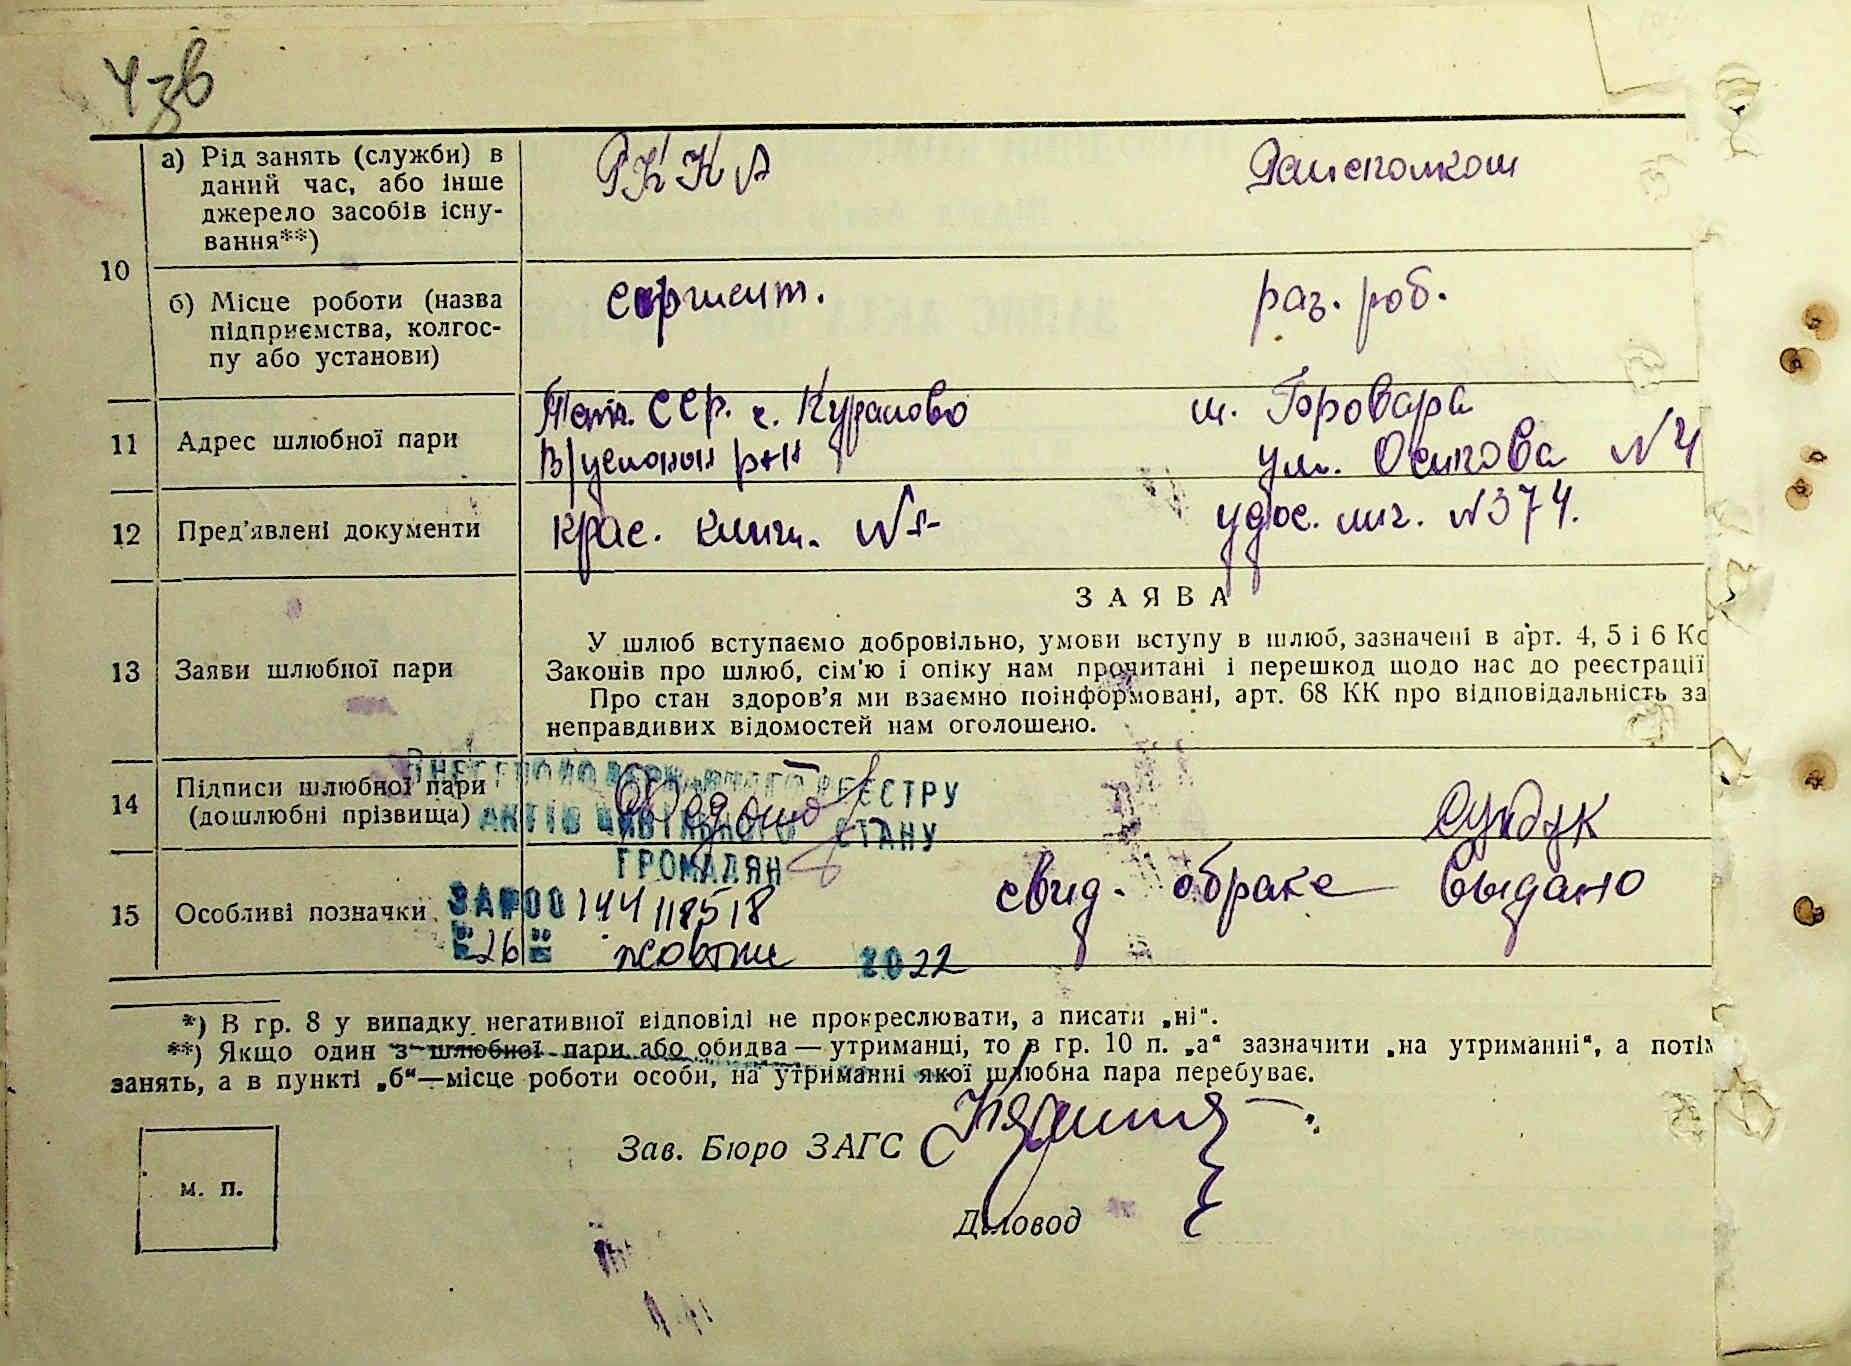 а) Рід занять (служби) в
даний час, або інше
джерело засобів існу-
вання**)
РККА
Райсполком
10
б) Місце роботи (назва
підприємства, колгос-
пу або установи)
сержент.
раз. роб.
11
Адрес шлюбної пари
Тат. ССР. с. Куралово
м. Бровара
р-н
ул. Осипова №4
12
Пред'явлені документи
крас. книж. №
удос. лич. №374.
13
Заяви шлюбної пари
ЗАЯВА
У шлюб вступаємо добровільно, умови вступу в шлюб, зазначені в арт. 4, 5 і 6 Ко
Законів про шлюб, сім'ю і опіку нам прочитані і перешкод щодо нас до реєстрації
Про стан здоров'я ми взаємно поінформовані, арт. 68 КК про відповідальність за
неправдивих відомостей нам оголошено.
14
Підписи шлюбної пари
(дошлюбні прізвища)
Сундук
ВНЕСЕНО ДО ДЕРЖАВНОГО РЕЄСТРУ
АКТІВ ЦИВІЛЬНОГО СТАНУ
ГРОМАДЯН
15
Особливі позначки
свид. о браке выдано
ЗА №00144118518
"26" жовтня 2022
*) В гр. 8 у випадку негативної відповіді не прокреслювати, а писати „ні“.
**) Якщо один з шлюбної пари або обидва — утриманці, то в гр. 10 п. „а“ зазначити „на утриманні“, а потім
занять, а в пункті „б“—місце роботи особи, на утриманні якої шлюбна пара перебуває.
Зав. Бюро ЗАГС
м. п.
Діловод